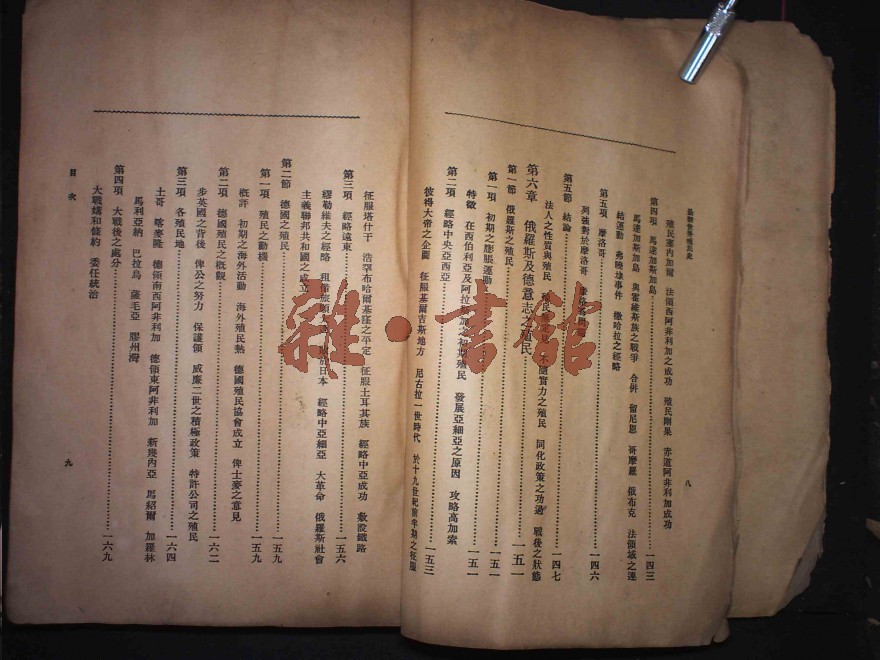 最新世界殖民史
八
殖民塞內加爾 法領西阿非利加之成功 殖民剛果 赤道阿非利加成功
第四項 馬達加斯加島 一四三
馬達加斯加島 與霍維斯族之戰爭 合併 留尼恩 哥摩羅 俄布克 法領域之連
結運動 弗曉壞事件 撒哈拉之經略
第五項 摩洛哥 一四六
列強對於摩洛哥
第五節 結論 一四七
法人之性質與殖民 殖民 實力之殖民 同化政策之功過 戰後之狀態
第六章 俄羅斯及德意志之殖民 一五一
第一節 俄羅斯之殖民 一五一
第一項 初期之膨脹運動 一五一
特徵 在西伯利亞及阿拉 初期殖民 發展亞細亞之原因 攻略高加索
第二項 經略中央亞西亞 一五三
彼得大帝之企圖 征服基爾吉斯地方 尼古拉一世時代 於十九世紀前半期之征服
征服塔什干 浩罕布哈爾基窪之平定 征服土耳其族 經略中亞成功 敷設鐵路
第三項 經略遠東 一五六
繆勒維夫之經略 租借旅順大 日本 經略中亞細亞 大革命 俄羅斯社會
主義聯邦共和國之成立
第二節 德國之殖民 一五九
第一項 殖民之動機 一五九
概許 初期之海外活動 海外殖民熱 德國殖民協會成立 俾士麥之意見
第二項 德國殖民之概觀 一六二
步英國之背後 俾公之努力 保護領 威廉二世之積極政策 特許公司之殖民
第三項 各殖民地 一六四
土哥 喀麥隆 德領南西阿非利加 德領東阿非利加 新幾內亞 馬紹爾 加羅林
馬利亞納 巴拉烏 薩毛亞 膠州灣
第四項 大戰後之處分 一六九
大戰媾和條約 委任統治
目次
九
雜·書館